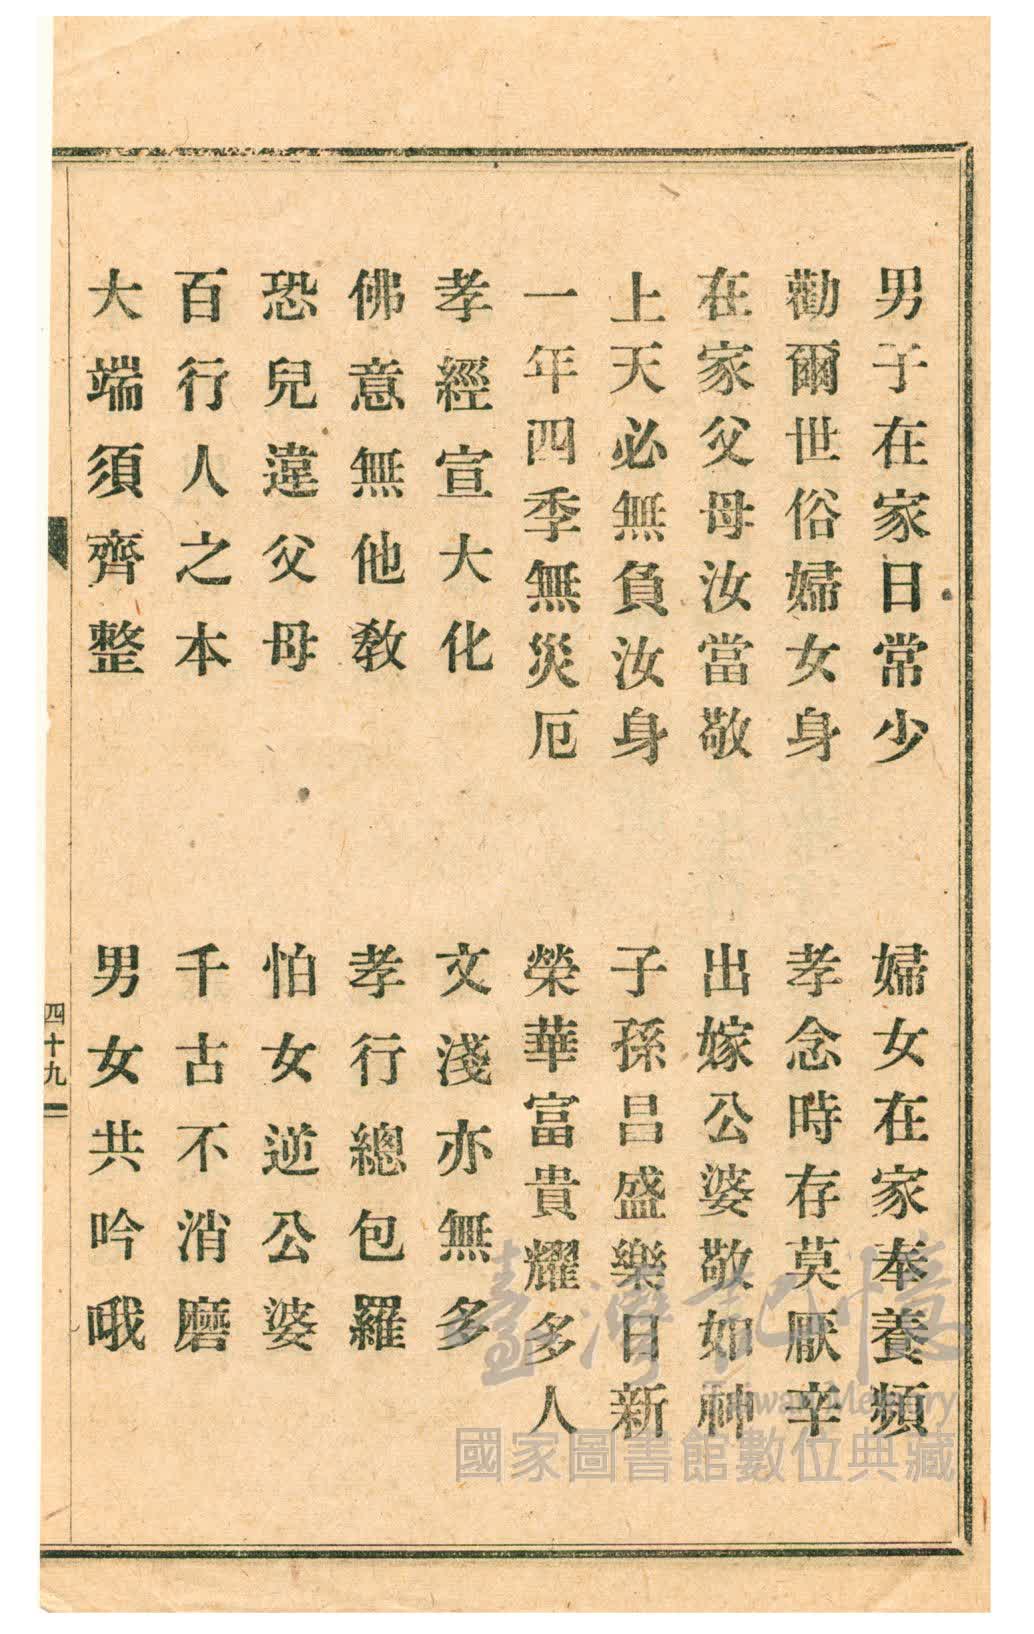 男子在家日常少　婦女在家奉養頻
勸爾世俗婦女身　孝念時存莫厭辛
在家父母汝當敬　出嫁公婆敬如神
上天必無負汝身　子孫昌盛樂日新
一年四季無災厄　榮華富貴耀多人
孝經宣大化　文淺亦無多
佛意無他教　孝行總包羅
恐兒違父母　怕女逆公婆
百行人之本　千古不消磨
大端須齊整　男女共吟哦
四十九
臺灣記憶
Taiwan Memory
國家圖書館數位典藏